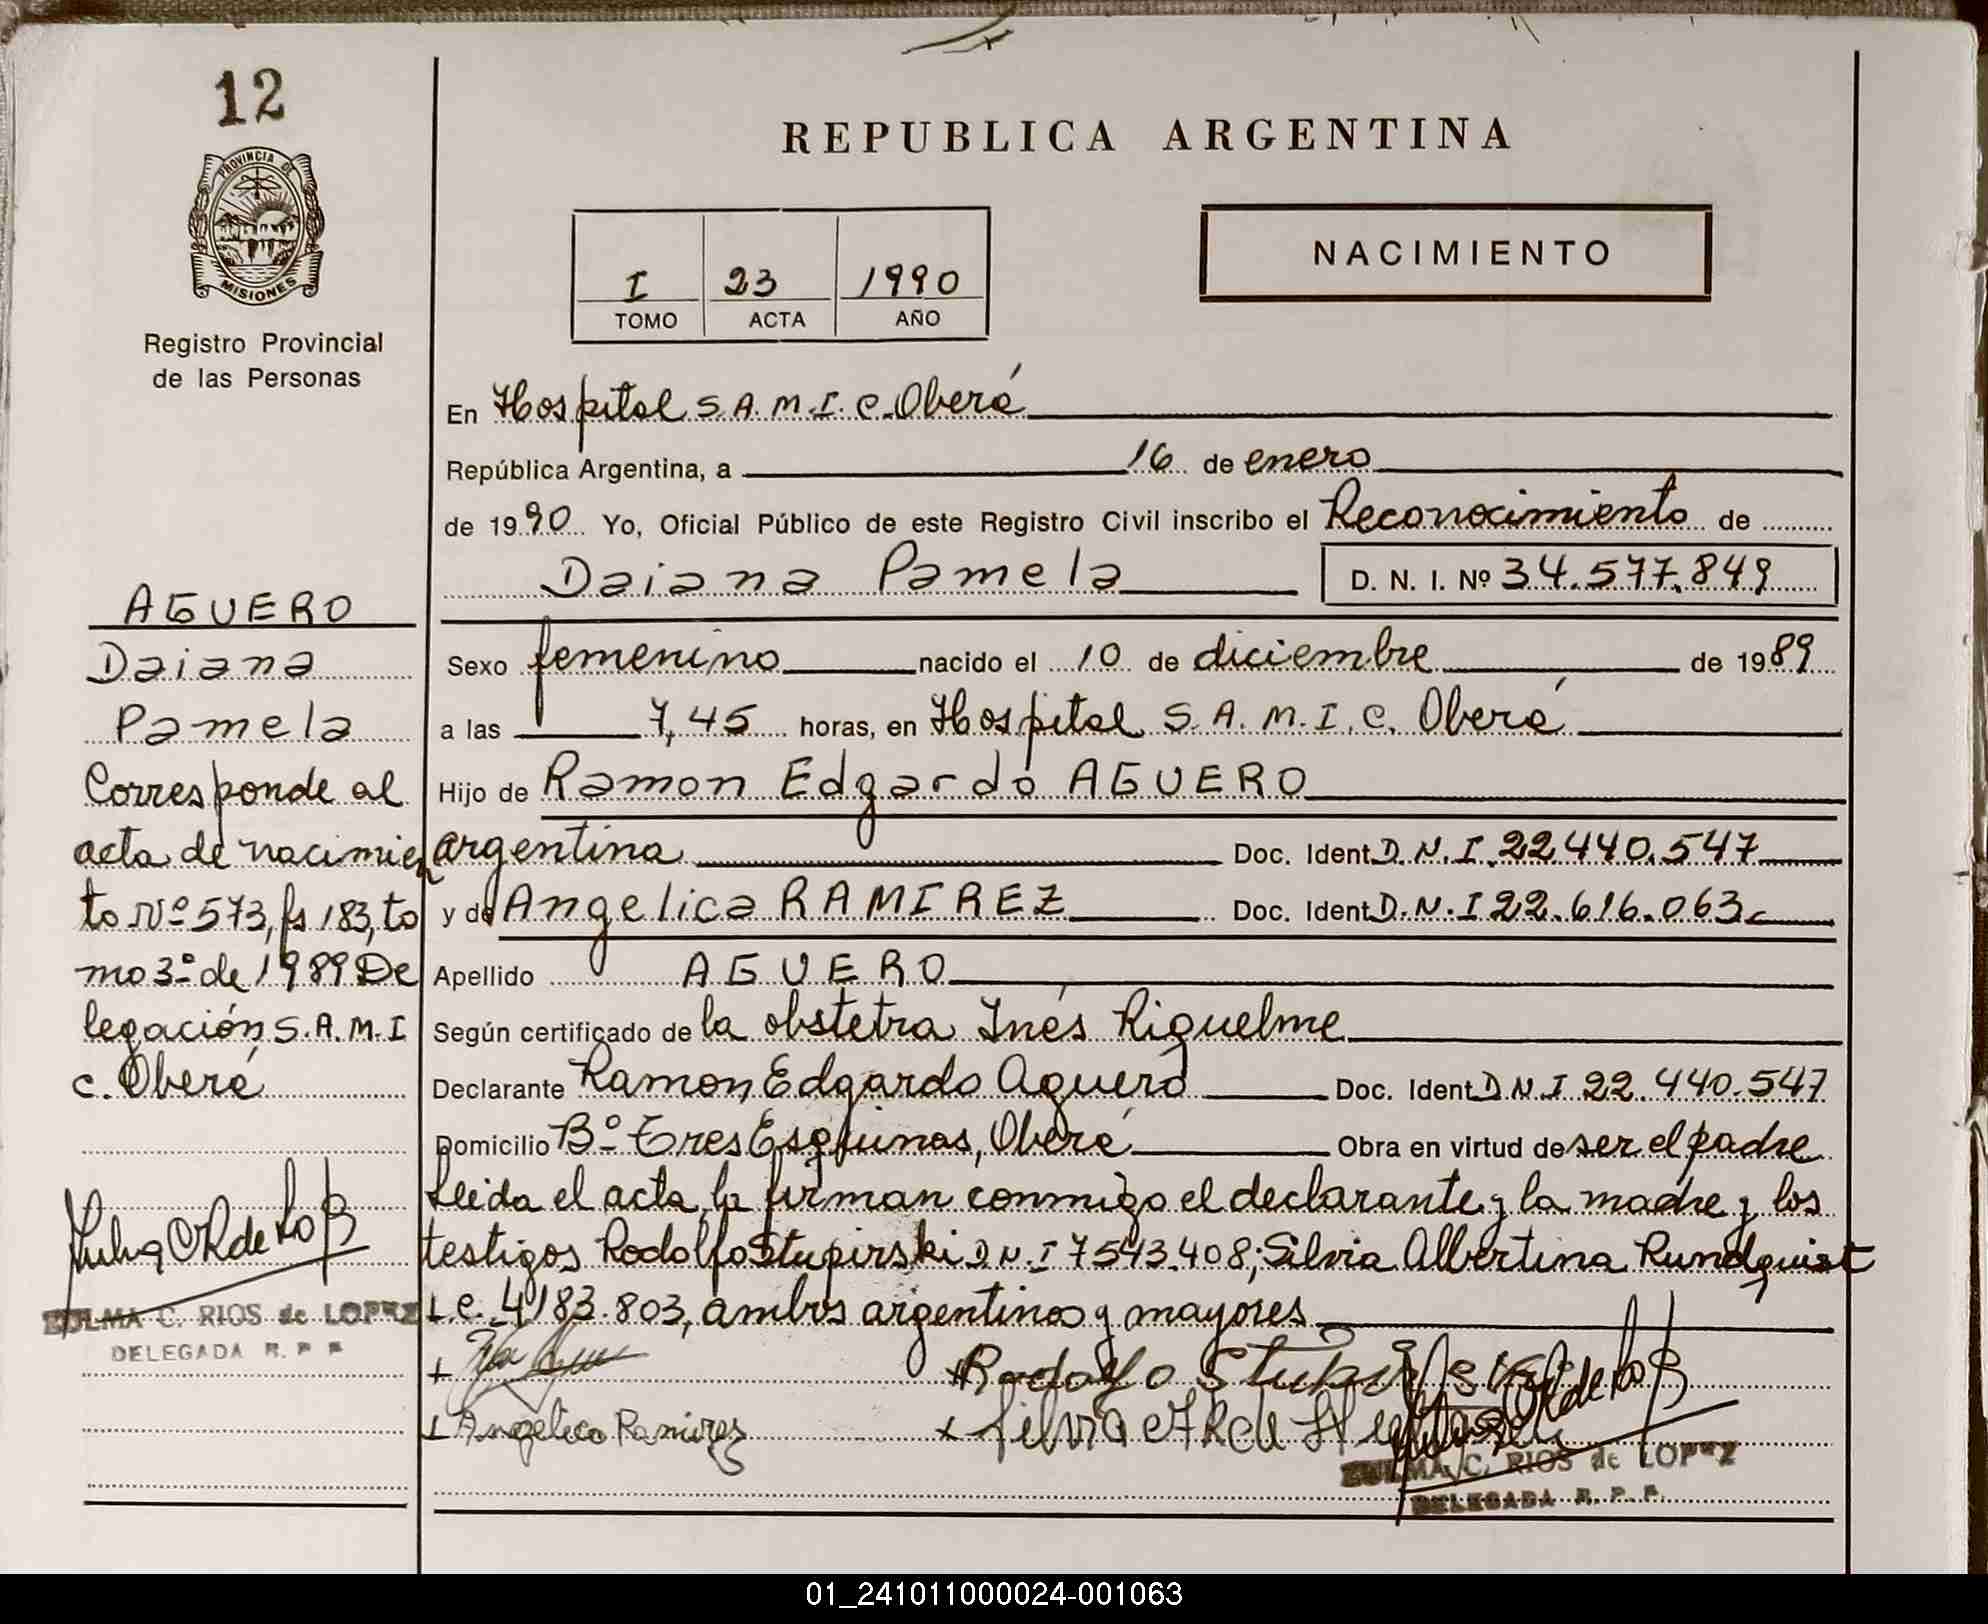 12
PROVINCIA DE
MISIONES
Registro Provincial
de las Personas
AGUERO
Daiana
Pamela
Corresponde al
acta de nacimien
to Nº 573, fs 183, to
mo 3º de 1989 De
legación S.A.M.I
C. Oberá
ZULMA C. RIOS de LOPEZ
DELEGADA R. P. P.
REPUBLICA ARGENTINA
I 23 1990
TOMO ACTA AÑO
NACIMIENTO
En Hospital S.A.M.I.C. Oberá
República Argentina, a 16 de enero
de 1990 Yo, Oficial Público de este Registro Civil inscribo el Reconocimiento de
Daiana Pamela D. N. I. Nº 34.577.849
Sexo femenino nacido el 10 de diciembre de 1989
a las 7,45 horas, en Hospital S.A.M.I.C. Oberá
Hijo de Ramon Edgardo AGUERO
argentina Doc. Ident D.N.I 22.440.547
y de Angelica RAMIREZ Doc. Ident D.N.I 22.616.063
Apellido AGUERO
Según certificado de la obstetra Inés Riquelme
Declarante Ramon Edgardo Aguero Doc. Ident D.N.I 22.440.547
Domicilio Bº Tres Esquinas, Oberá Obra en virtud de ser el padre
Leida el acta, la firman conmigo el declarante y la madre y los
testigos Rodolfo Stupirski D.N.I 7543.408; Silvia Albertina Rundquist
L.C. 4183.803, ambos argentinos y mayores
+ + Rodolfo
+ Angelica Ramirez + Silvia
ZULMA C. RIOS de LOPEZ
DELEGADA R. P. P.
01_241011000024-001063